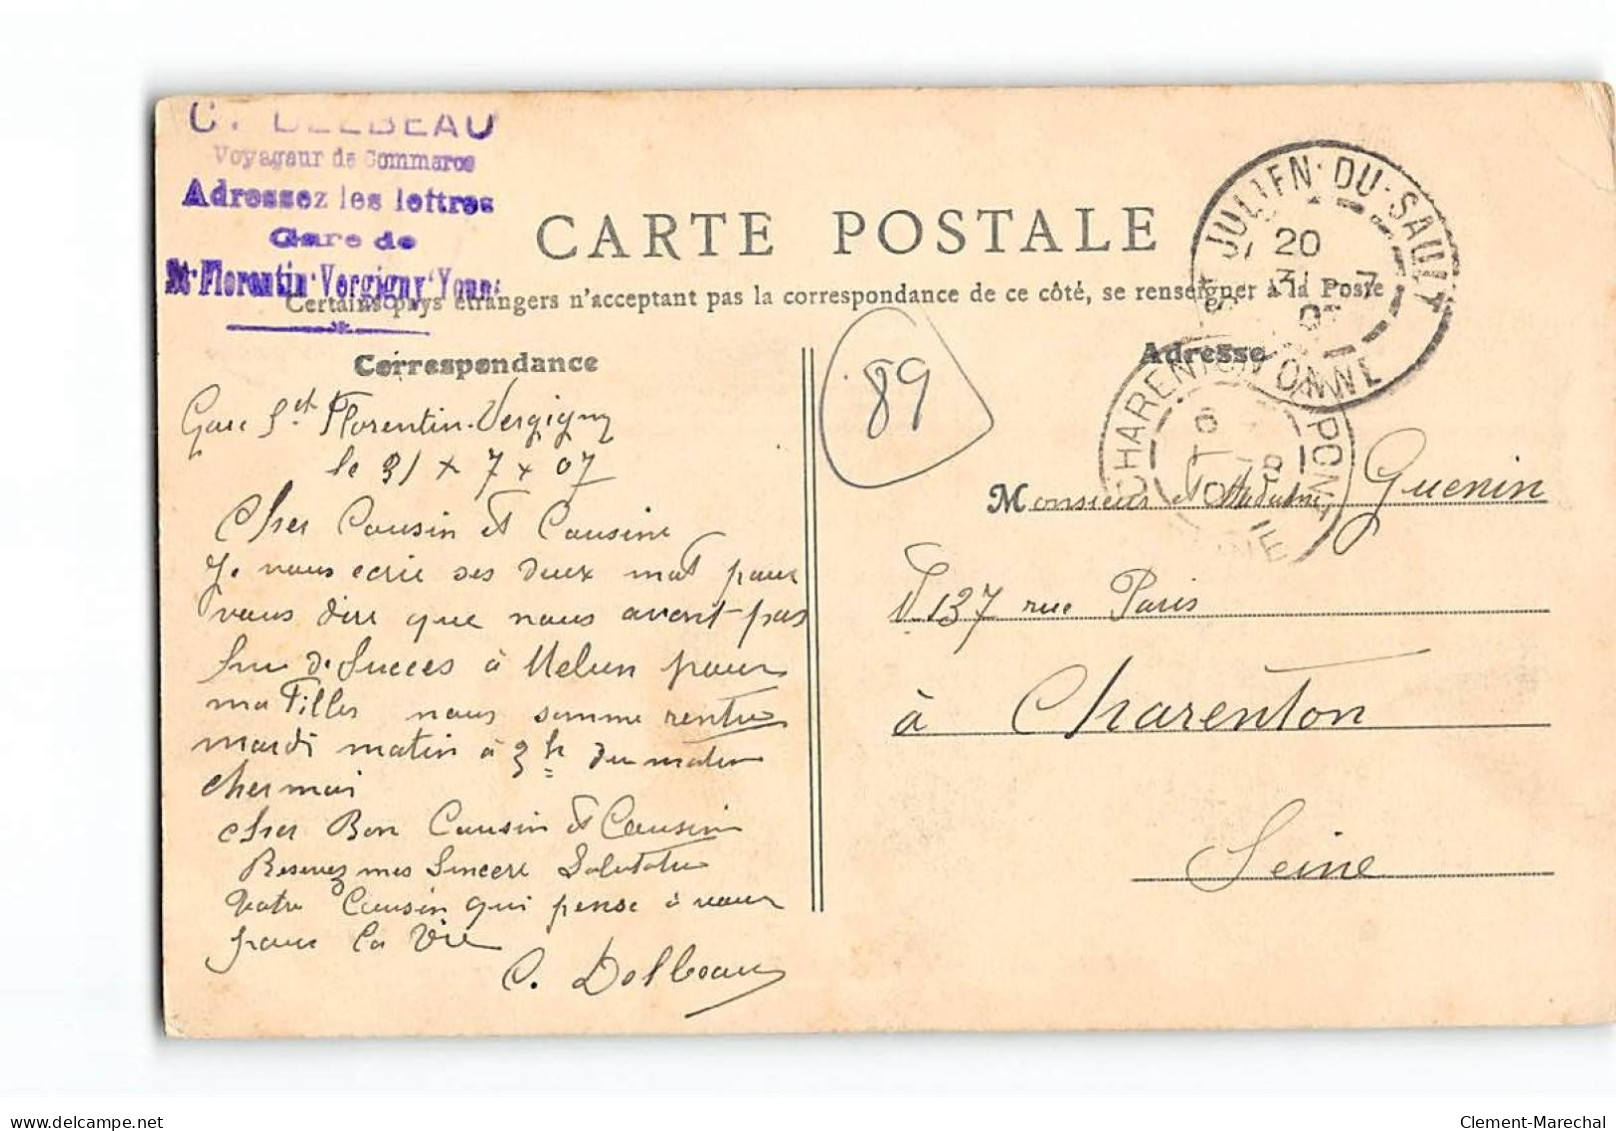 C. DELBEAU
Voyageur de Commerce
Adressez les lettres
Gare de
St-Florentin-Vergigny Yonne
CARTE POSTALE
Certains pays étrangers n'acceptant pas la correspondance de ce côté, se renseigner à la Poste
Correspondance
Adresse
ST JULIEN·DU·SAULT
20
31 7
07
YONNE
CHARENTON PONT
SEINE
89
Gare St Florentin-Vergigny
le 31 x 7 x 07
Cher Cousin et Cousine
Je vous ecrie ses deux mot pour
vous dire que nous avont pas
de Succes à Melun pour
ma Filles nous somme rentre
mardi matin à 3h du matin
cher Bon Cousin et Cousin
Resevez mes Sincere Salutatin
Votre Cousin qui pense à vous
pour la Vie
C. Delbeau
Monsieur et Madame Guenin
137 rue Paris
à Charenton
Seine
delcampe.net
Clement-Marechal